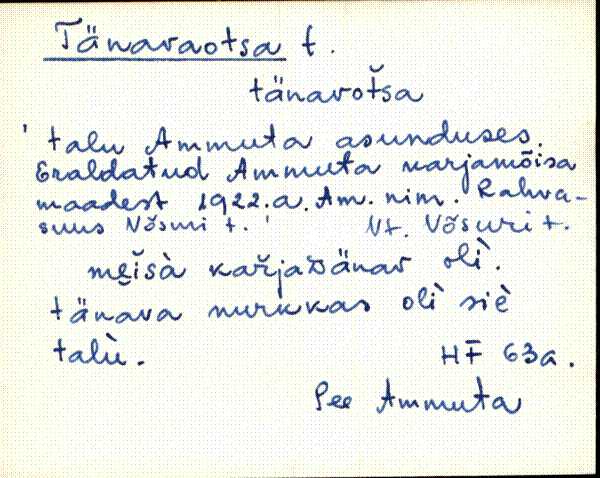 Tänavaotsa t.
tänavot̆sa
' talu Ammuta asunduses.
Eraldatud Ammuta karjamõisa
maadest 1922.a. Am. nim. Rahva-
suus Võsuri t. ' Nt. Võsuri t.
mĕisà kar̆jaᴅänav olì.
tänava nurkkas olì siè
talù. HF 63a.
Pee Ammuta